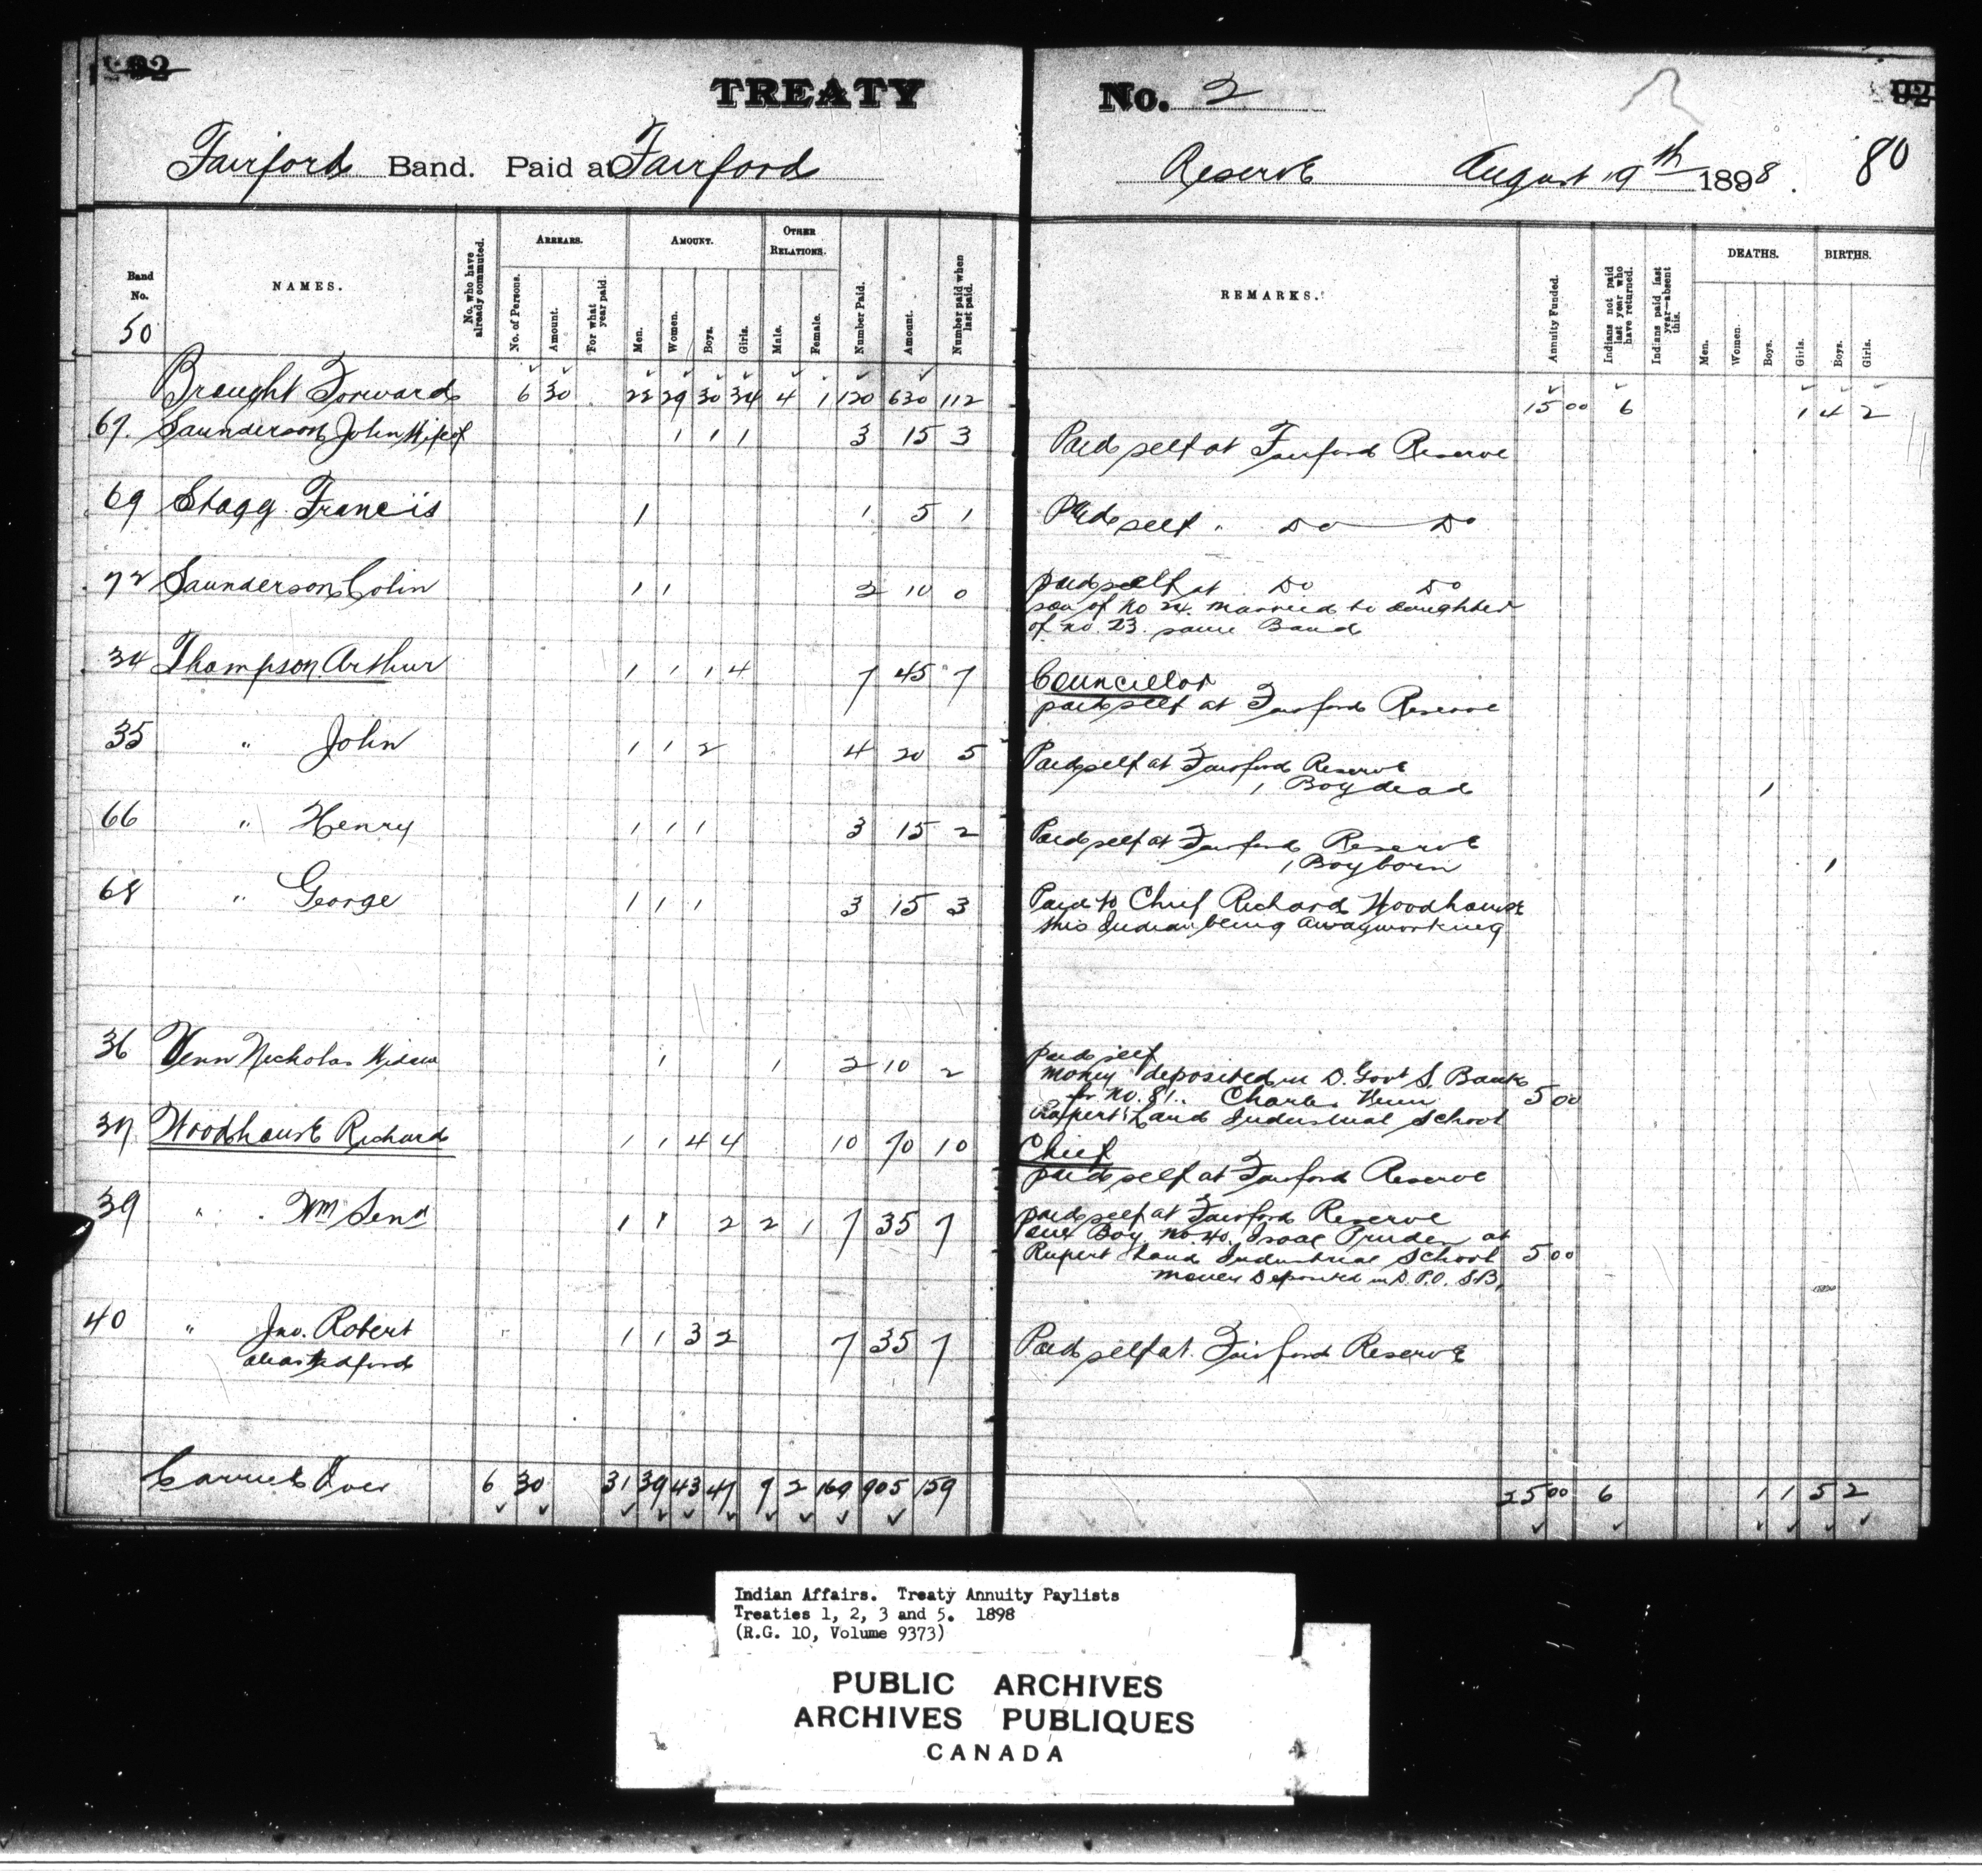 TREATY No. 2
Fairford Band. Paid at Fairford Reserve August 19th 1898. 80
Band No. NAMES. No. who have already commuted. ARREARS. No. of Persons. Amount. For what year paid. AMOUNT. Men. Women. Boys. Girls. OTHER RELATIONS. Male. Female. Number Paid. Amount. Number paid when last paid. REMARKS. Annuity Funded. Indians not paid last year who have returned. Indians paid last year—absent this. DEATHS. Men. Women. Boys. Girls. BIRTHS. Boys. Girls.
50
Brought Forward 6 30 22 29 30 34 4 1 120 630 112 15 00 6 1 4 2
67. Saunderson John Wife of 1 1 1 3 15 3 Paid self at Fairford Reserve
69 Stagg Francis 1 1 5 1 Paid self " Do Do
72 Saunderson Colin 1 1 2 10 0 paid self at Do Do
son of No 24. married to daughter
of no. 23. same Band
34 Thompson Arthur 1 1 1 4 7 45 7 Councillor
paid self at Fairford Reserve
35 " John 1 1 2 4 20 5 Paid self at Fairford Reserve
1 Boy dead 1
66 " Henry 1 1 1 3 15 2 Paid self at Fairford Reserve
1 Boy born 1
68 " George 1 1 1 3 15 3 Paid to Chief Richard Woodhouse
this Indian being away working
36 Venn Nicholas Widow 1 1 2 10 2 paid self
money deposited in D. Govt S. Bank
for No. 81. Charles Venn 5 00
Rupert's Land Industrial School
37 Woodhouse Richard 1 1 4 4 10 70 10 Chief
paid self at Fairford Reserve
39 " Wm Senr 1 1 2 2 1 7 35 7 paid self at Fairford Reserve
Boy No. 40. Isaac Pruden at
Rupert Land Industrial School 5 00
money Deposited in D. P.O. S.B.
40 " Jno. Robert 1 1 3 2 7 35 7 Paid self at Fairford Reserve
alias
Carried Over 6 30 31 39 43 47 9 2 169 905 159 25 00 6 1 1 5 2
Indian Affairs. Treaty Annuity Paylists
Treaties 1, 2, 3 and 5. 1898
(R.G. 10, Volume 9373)
PUBLIC ARCHIVES
ARCHIVES PUBLIQUES
CANADA